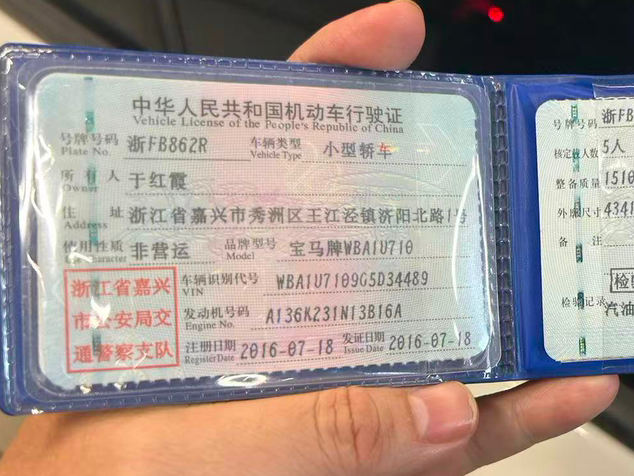 中华人民共和国机动车行驶证
Vehicle License of the People's Republic of China
号牌号码 浙FB862R 车辆类型 小型轿车
Plate No. Vehicle Type
所有人 于红霞
Owner
住址 浙江省嘉兴市秀洲区王江泾镇济阳北路1号
Address
使用性质 非营运 品牌型号 宝马牌WBA1U710
Character Model
浙江省嘉兴
市公安局交
通警察支队
车辆识别代号 WBA1U7109G5D34489
VIN
发动机号码 A136K231N13B16A
Engine No.
注册日期 2016-07-18 发证日期 2016-07-18
Register Date Issue Date
号牌号码 浙FB
核定载人数 5人
整备质量 1510
外廓尺寸 4341
备注
检验记录
汽油